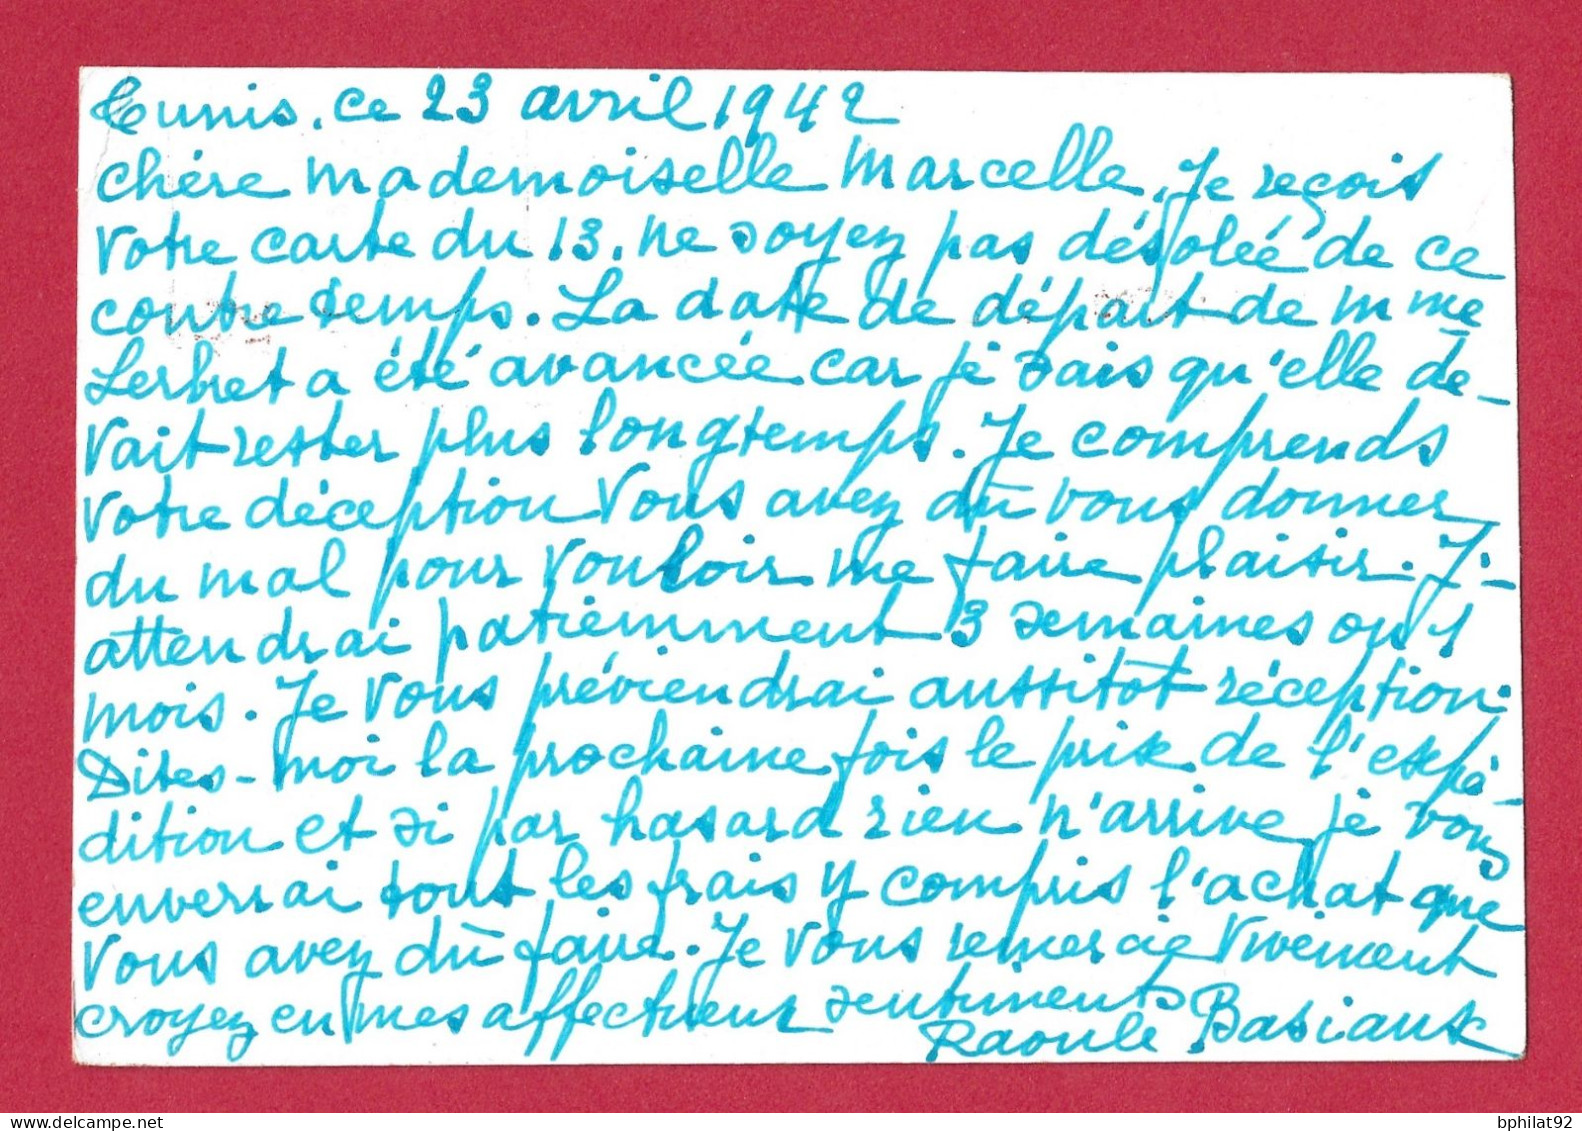 Tunis. ce 23 avril 1942
chère mademoiselle Marcelle. Je reçois
votre carte du 13. ne soyez pas désolée de ce
contre temps. La date de départ de mme
Lerbret a été avancée car je sais qu'elle de-
vait rester plus longtemps. Je comprends
votre déception vous avez dû vous donner
du mal pour vouloir me faire plaisir. J'-
attendrai patiemment 3 semaines ou 1
mois. Je vous préviendrai aussitôt réception.
Dites-moi la prochaine fois le prix de l'expé-
dition et si par hasard rien n'arrive je vous
enverrai tout les frais y compris l'achat que
vous avez dû faire. Je vous remercie vivement
croyez en mes affectueux sentiments
Raoule Basiaux
bphilat92